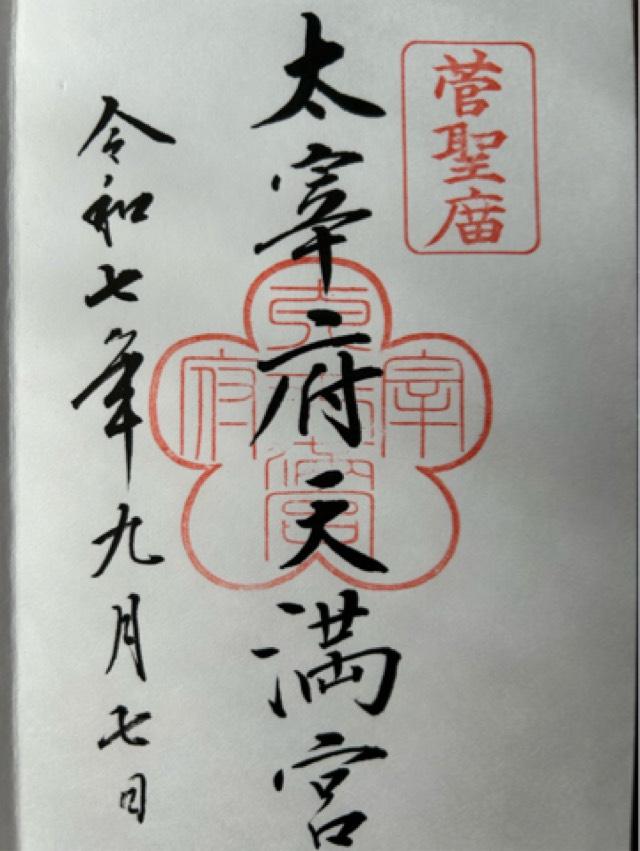 菅聖廟
太宰府天満宮
令和七年九月七日